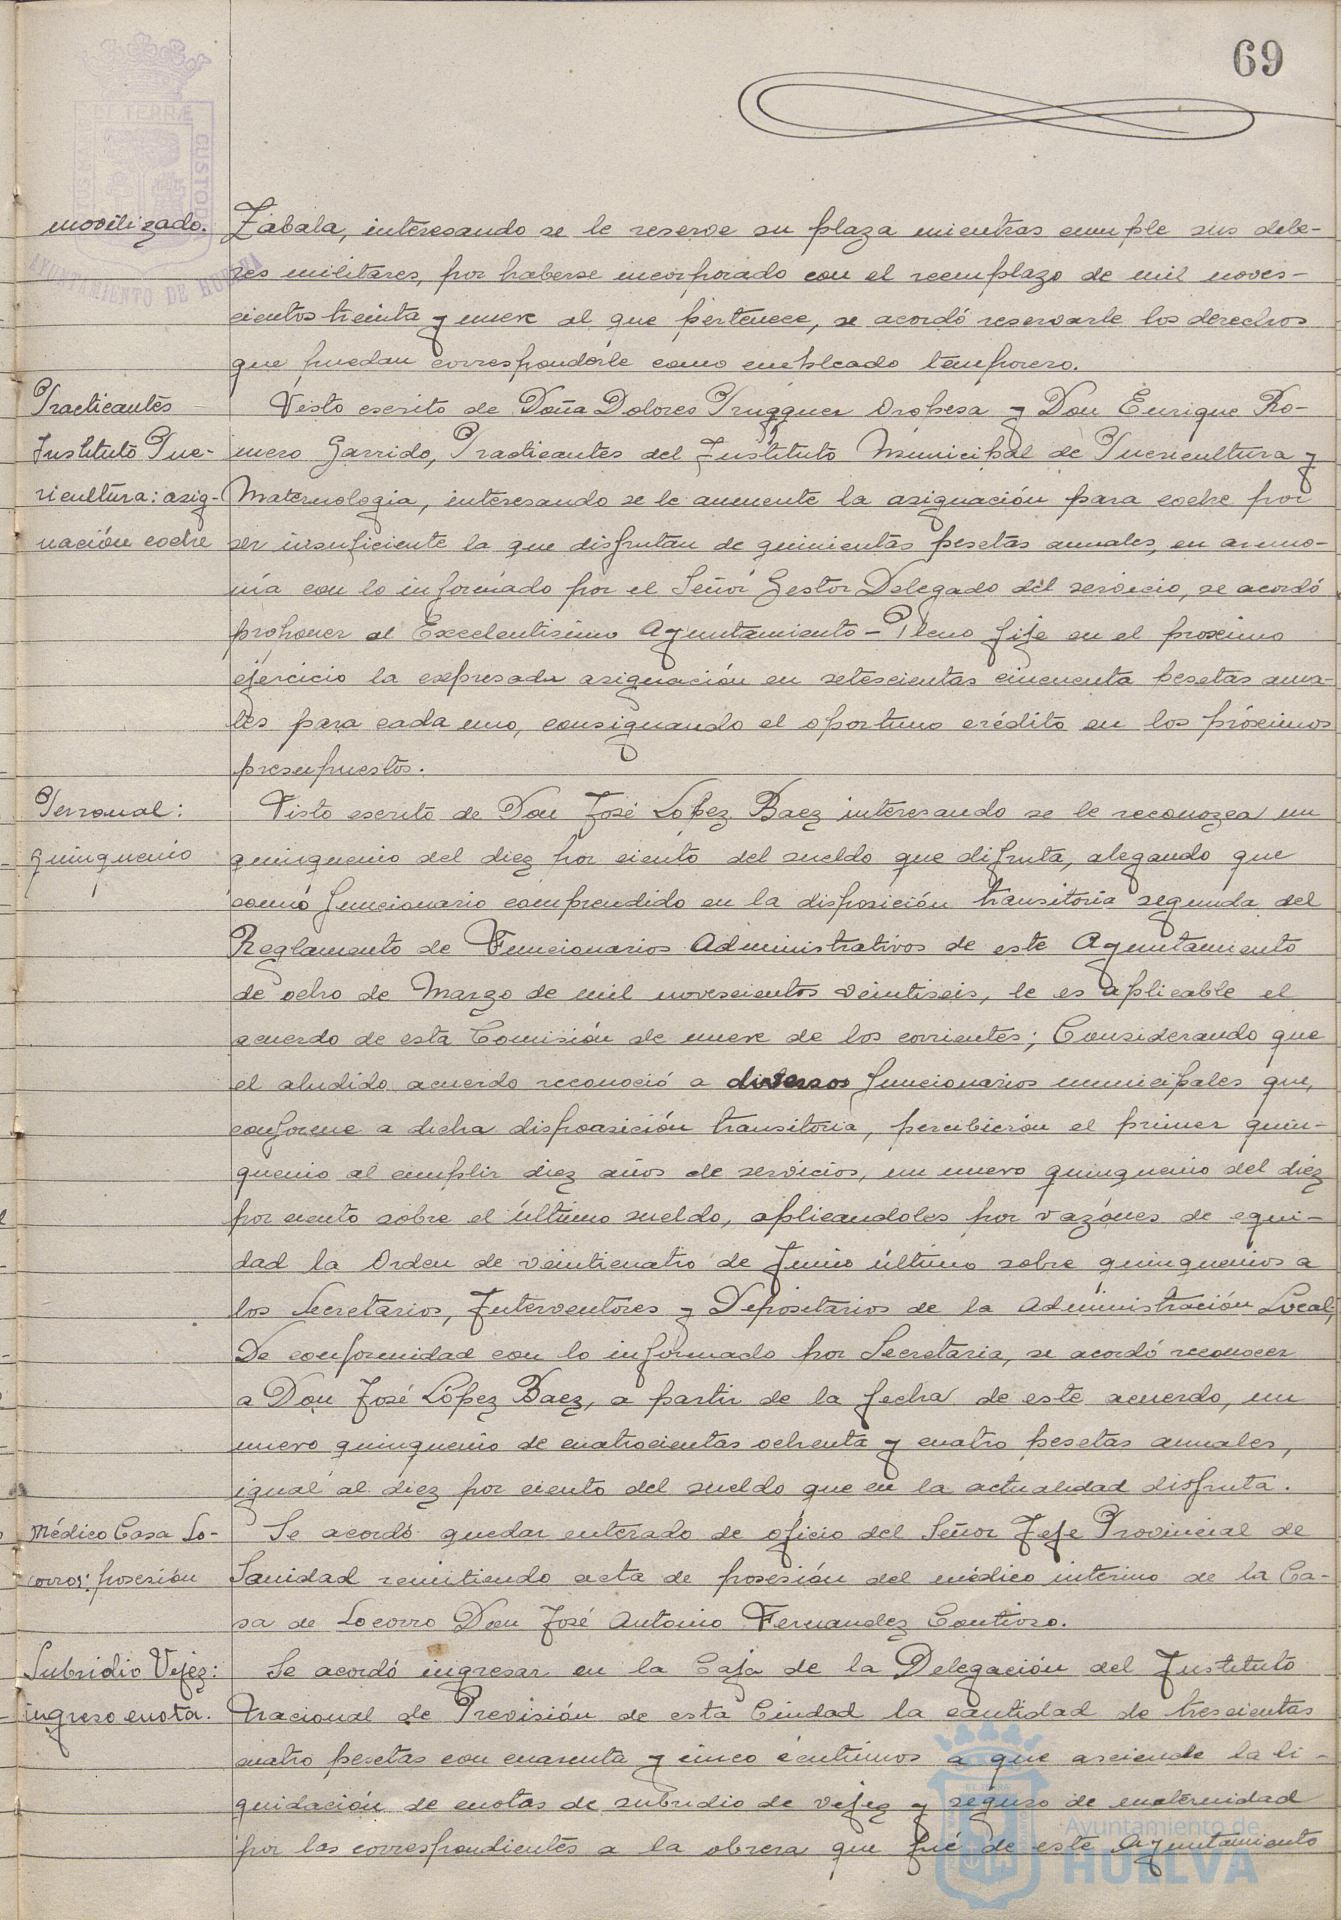 69
movilizado.
Zabala, interesando se le reserve su plaza mientras cumple sus debe-
res militares, por haberse incorporado con el reemplazo de mil noves-
cientos treinta y nueve al que pertenece, se acordó reservarle los derechos
que puedan corresponderle como empleado temporero.
Practicantes
Instituto Pue-
ricultura: asig-
nación coche
Visto escrito de Doña Dolores Oropesa y Don Enrique Ro-
mero Garrido, Practicantes del Instituto Municipal de Puericultura y
Maternologia, interesando se le aumente la asignación para coche por
ser insuficiente la que disfrutan de quinientas pesetas anuales, en armo-
nía con lo informado por el Señor Gestor Delegado del servicio, se acordó
proponer al Excelentisimo Ayuntamiento-Pleno fije en el proximo
ejercicio la expresada asignación en setescientas cincuenta pesetas anua-
les para cada uno, consignando el oportuno crédito en los próximos
presupuestos.
Personal:
quinquenio
Visto escrito de Don José López Baez interesando se le reconozca un
quinquenio del diez por ciento del sueldo que difruta, alegando que
como funcionario comprendido en la disposición transitoria segunda del
Reglamento de Funcionarios Administrativos de este Ayuntamiento
de ocho de Marzo de mil novescientos veintiseis, le es aplicable el
acuerdo de esta Comisión de nueve de los corrientes; Considerando que
el aludido acuerdo reconoció a diversos funcionarios municipales que,
conforme a dicha disposición transitoria, percibieron el primer quin-
quenio al cumplir diez años de servicios, un nuevo quinquenio del diez
por ciento sobre el último sueldo, aplicandoles por razónes de equi-
dad la Orden de veinticuatro de Junio último sobre quinquenios a
los Secretarios, Interventores y Depositarios de la Administración Local;
De conformidad con lo informado por Secretaria, se acordó reconocer
a Don José López Baez, a partir de la fecha de este acuerdo, un
nuevo quinquenio de cuatrocientas ochenta y cuatro pesetas anuales,
igual al diez por ciento del sueldo que en la actualidad disfruta.
Médico Casa So-
corros: posesión
Se acordó quedar enterado de oficio del Señor Jefe Provincial de
Sanidad remitiendo acta de posesión del médico interino de la Ca-
sa de Socorro Don José Antonio Fernandez Contioso.
Subsidio Vejez:
ingreso cuota.
Se acordó ingresar en la Caja de la Delegación del Instituto
Nacional de Previsión de esta Ciudad la cantidad de trescientas
cuatro pesetas con cuarenta y cinco céntimos a que asciende la li-
quidación de cuotas de subsidio de vejez y seguro de maternidad
por las correspondientes a la obrera que fué de este Ayuntamiento
AYUNTAMIENTO DE HUELVA
Ayuntamiento de
HUELVA